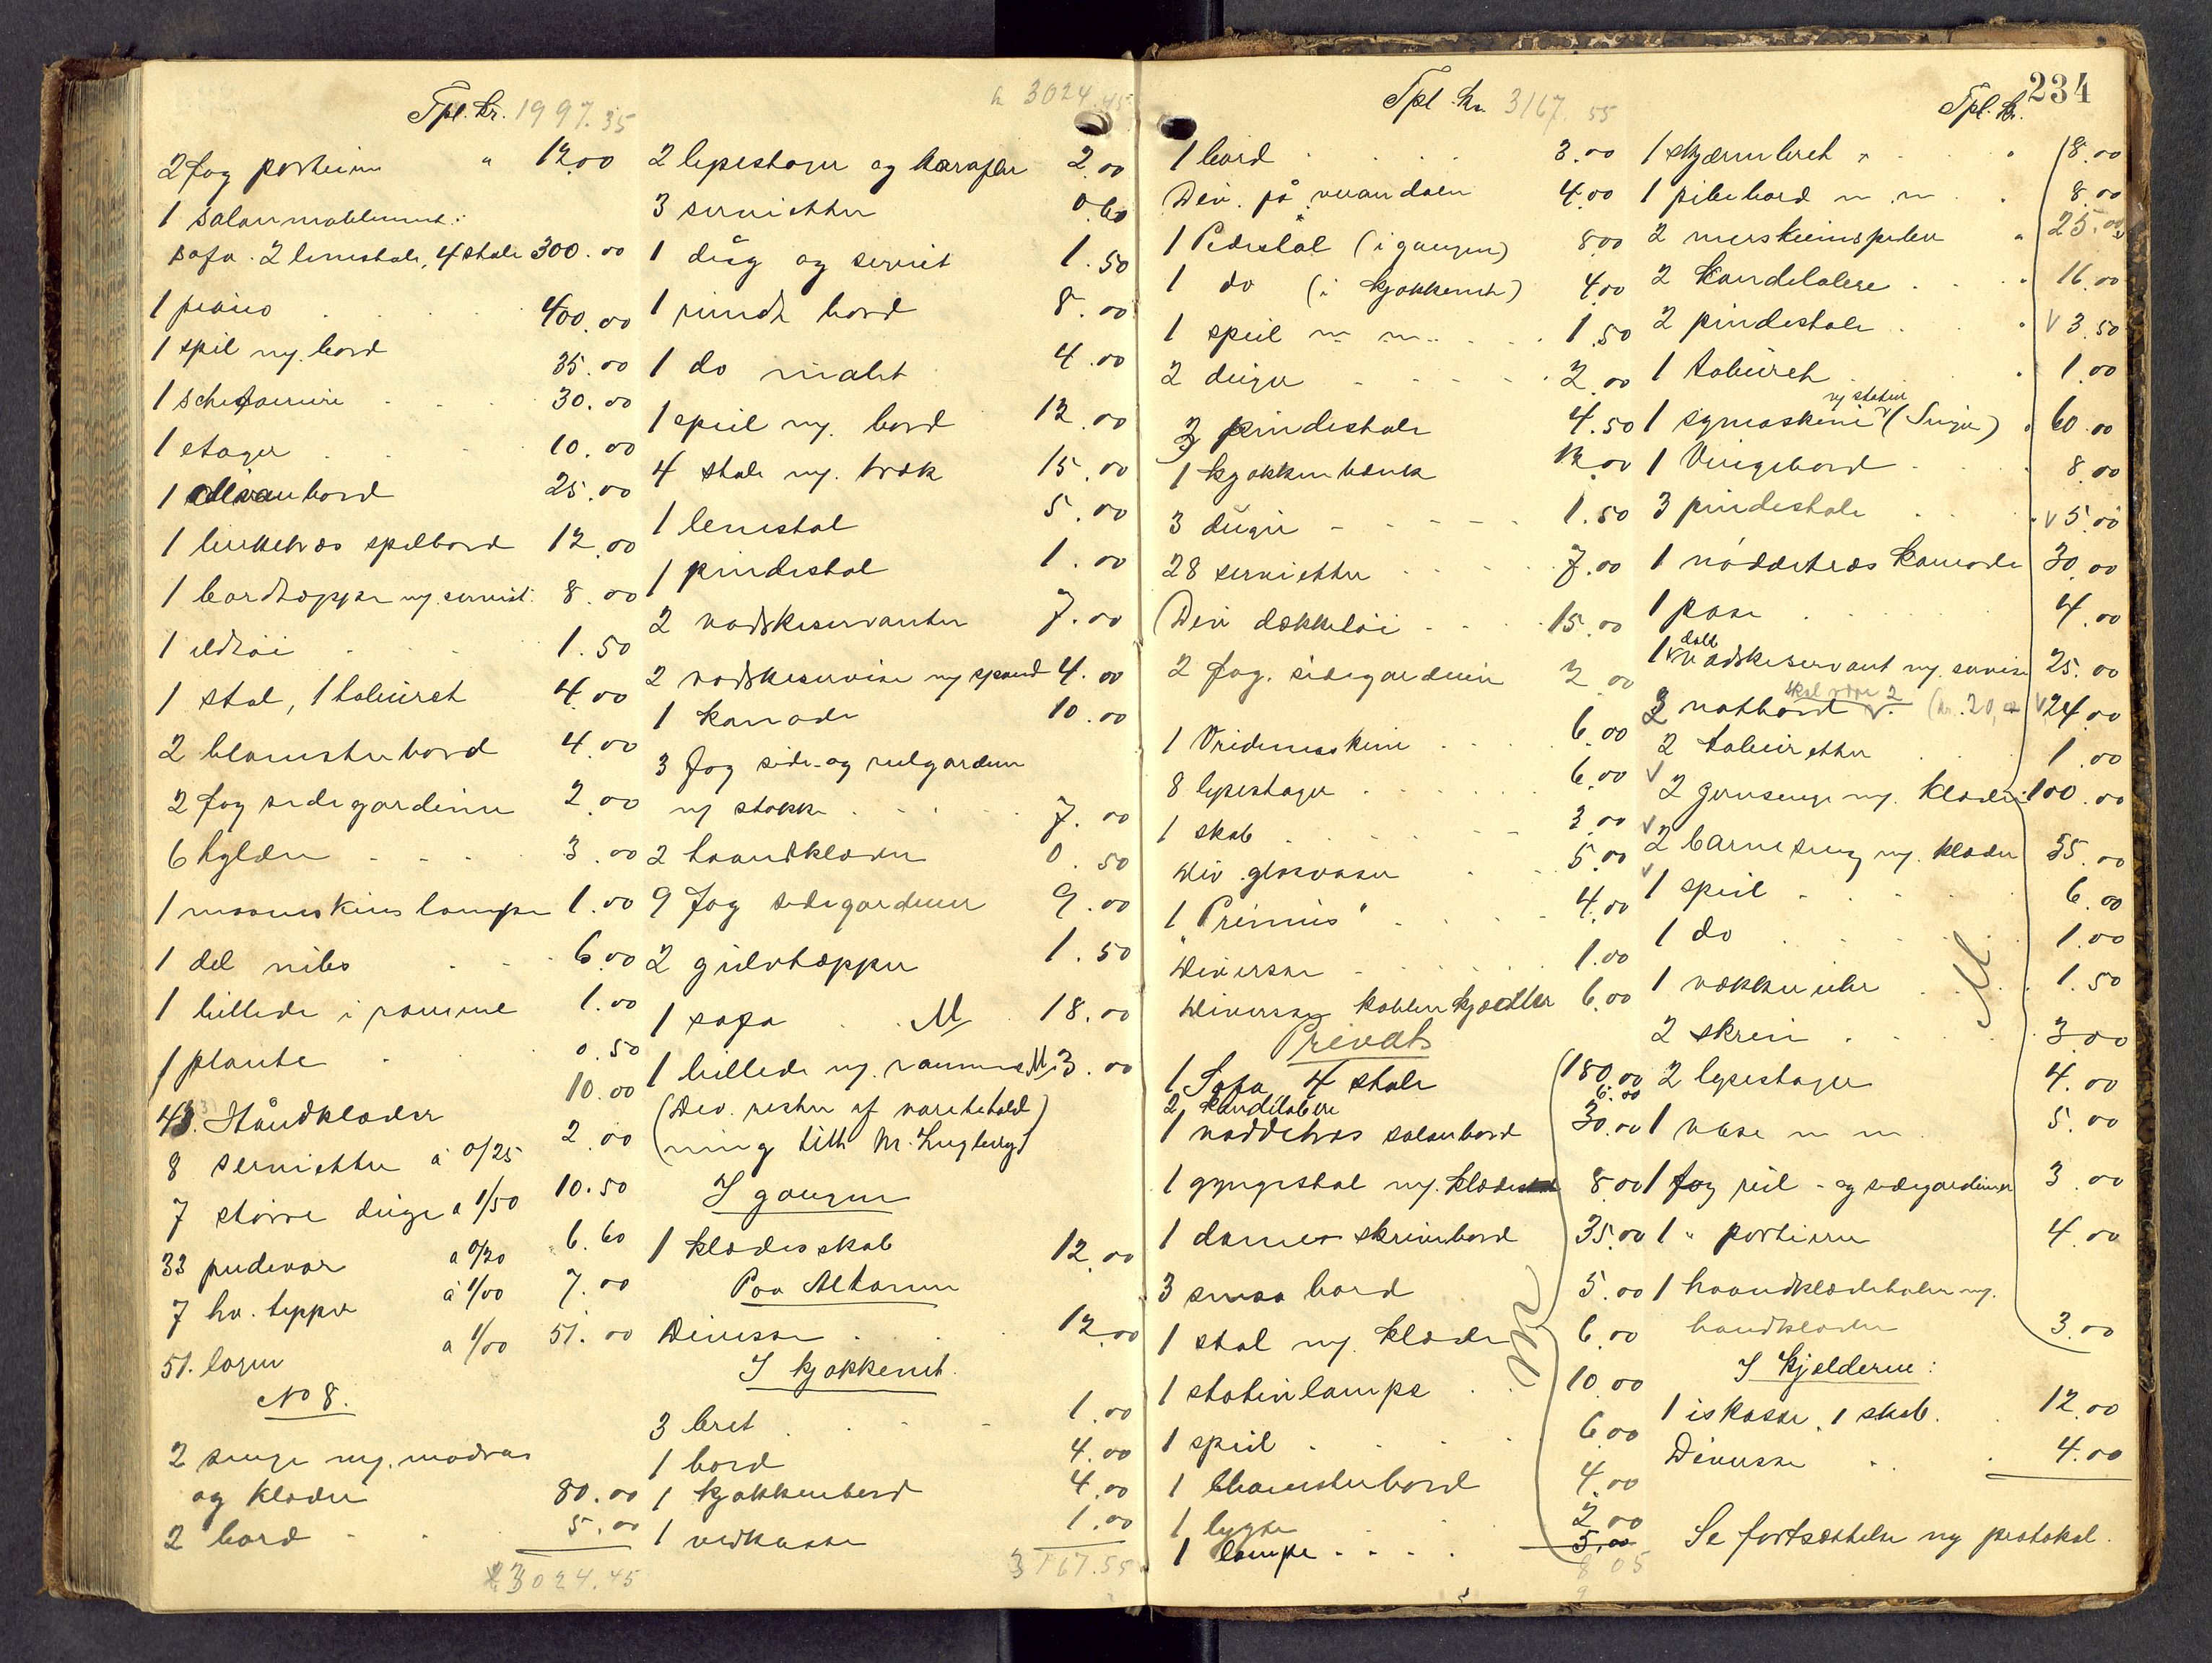 Tpl. kr. 1997.35
2 fag portierer " 12.00
1 salonmøblement:
sofa. 2 lenestole, 4 stole 300.00
1 piano 400.00
1 speil m/. bord 35.00
30.00
1 etager 10.00
1 divanbord 25.00
1 birketræs spilbord 12.00
1 bordtæppe m/. serviet. 8.00
1 ildtøi 1.50
1 stol, 1 taburet 4.00
2 blomsterbord 4.00
2 fag sidegardiner 2.00
6 hylder 3.00
1 maaneskins lampe 1.00
1 del nibs 6.00
1 billede i ramme 1.00
1 plante 0.50
43. Håndklæder 10.00
8 servietter á 0/25 2.00
7 større duge á 1/50 10.50
33 pudevar á 0/20 6.60
7 hv. tepper á 1/00 7.00
51. lagen á 1/00 51.00
No 8.
2 senge m/. madras
og klæder 80.00
2 bord 5.00
3024.45
3024.45
2 lysestager og karafler 2.00
3 servietter 0.60
1 dug og serviet 1.50
1 rundt bord 8.00
1 do malt 4.00
1 speil m/. bord 12.00
4 stole m/. træk 15.00
1 lenestol 5.00
1 pindestol 1.00
2 vadskeservanter 7.00
2 vadskeservise m/ spand 4.00
1 komode 10.00
3 fag side- og rulgardiner
m/ stokke 7.00
2 haandklæder 0.50
9 fag sidegardiner 9.00
2 gulvtæpper 1.50
1 sofa M 18.00
1 billede m/. ramme M 3.00
(Div. rester af varebehold
ning tilh. Hr. )
I gangen
1 klædesskab 12.00
Paa Altanen
Diverse 12.00
I kjøkkenet.
3 bret 1.00
1 bord 4.00
1 kjøkkenbord 4.00
1 vedkasse 1.00
3167.55
Tpl. kr. 3167.55
1 bord 3.00
Div. på verandaen 4.00
1 Pedestal (i gangen) 8.00
1 do (i kjøkkenet) 4.00
1 speil m. m. 1.50
2 duger 2.00
3 pindestole 4.50
1 kjøkkenbænk
3 duger 1.50
28 servietter 7.00
Div dækketøi 15.00
2 fag. sidegardiner 2.00
1 Vridemaskine 6.00
8 lysestager 6.00
1 skab 3.00
div glasvaser 5.00
1 "Primus" 4.00
Diverse 1.00
Diverse kobberkjedler 6.00
Privat
1 Sofa 4 stole 180.00
2 kandelabere 6.00
1 nøddetræs salonbord 30.00
1 gyngestol m/. klæde 8.00
1 dames skrivebord 35.00
3 smaa bord 5.00
1 stol m/. klæde 6.00
1 stativlampe 10.00
1 speil 6.00
1 blomsterbord 4.00
1 lygte 2.00
1 lampe 5.00
805
234
Tpl. kr.
1 skjermbret 8.00
1 pibebord m. m 8.00
2 merskumspiber 25.00
2 Kandelabere 16.00
2 pindestole V 3.50
1 taburet 1.00
1 symaskine m/ stativ (Singer) 60.00
1 Vingebord 8.00
3 pindestole V 5.00
1 nøddetræs komode 30.00
1 vase 4.00
1 dobb vadskeservant m/. servise 25.00
3 natbord skal være 2 (kr. 20, V 24.00
2 taburetter 1.00
V 2 jernsenge m/. klæder 100.00
V 2 barneseng m/. klæder 35.00
V 1 speil 6.00
1 do 1.00
1 vækkerur 1.50
2 skrin 3.00
2 lysestager 4.00
1 vase m m 5.00
1 fag rul- og sidegardiner 3.00
1 " portierer 4.00
1 haandklædeholder m/.
handklæder 3.00
I Kjelderen:
1 iskasse, 1 skab. 12.00
Diverse 4.00
Se fortsættelse ny protokol.